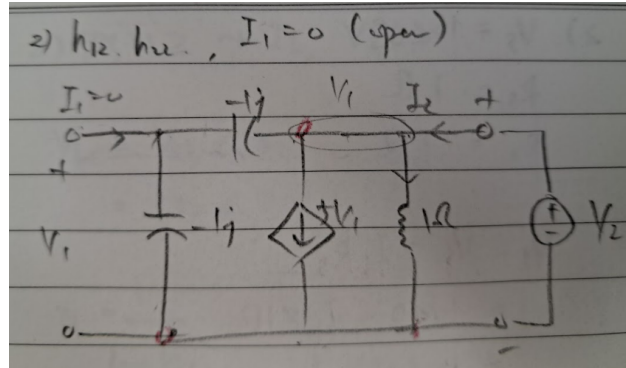 2) h12. h22., I1=0 (open)
I1=0 -1j V1 I2 +
+
V1 -1j V1 1Ω + - V2
-